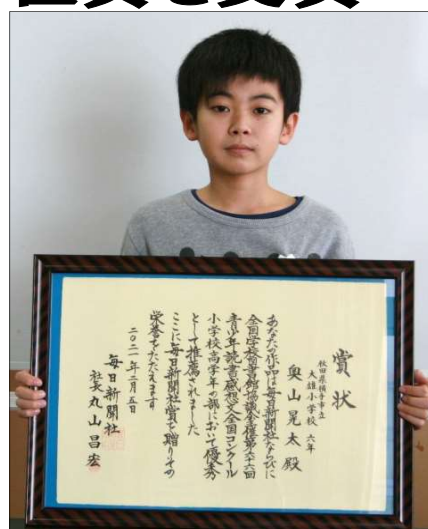 社賞を受賞
賞状
秋田県横手市立
大雄小学校 六年
奥山晃太 殿
あなたの作品は毎日新聞社ならびに
全国学校図書館協議会主催第六十六回
青少年読書感想文全国コンクール
小学校高学年の部において優秀
として推薦されました
ここに毎日新聞社賞を贈りその
栄誉をたたえます
二〇二一年二月五日
毎日新聞社
社長 丸山昌宏